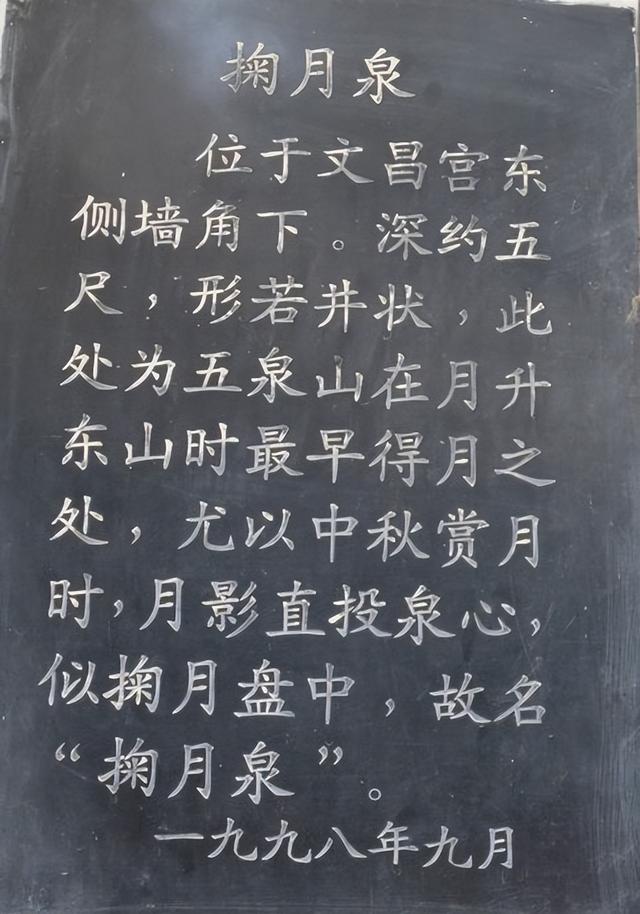 掬月泉
位于文昌宫东
侧墙角下。深约五
尺，形若井状，此
处为五泉山在月升
东山时最早得月之
处，尤以中秋赏月
时，月影直投泉心，
似掬月盘中，故名
“掬月泉”。
一九九八年九月